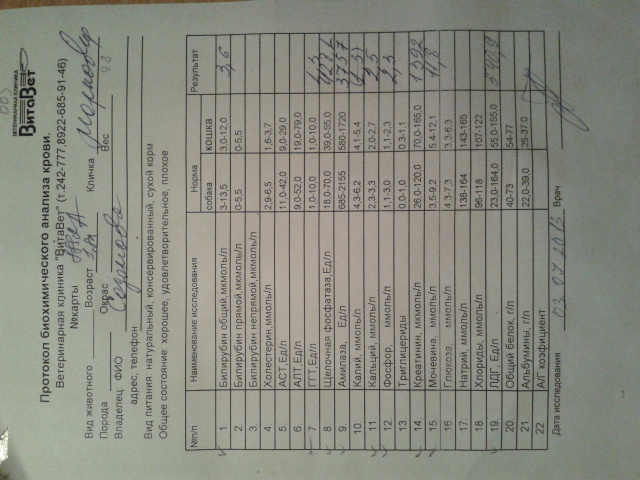 ВЕТЕРИНАРНАЯ КЛИНИКА
ВитаВет
Протокол биохимического анализа крови.
Ветеринарная клиника "ВитаВет" (т.242-777,8922-685-91-46)
№карты
Вид животного Возраст Кличка
Порода Окрас Вес
Владелец ФИО
адрес, телефон
Вид питания: натуральный, консервированный, сухой корм
Общее состояние: хорошее, удовлетворительное, плохое
№п/п Наименование исследования Норма Результат
собака кошка
1 Билирубин общий,мкмоль/л 3-13,5 3,0-12,0 3,6
2 Билирубин прямой,мкмоль/л 0-5,5 0-5,5
3 Билирубин непрямой,мкмоль/л
4 Холестерин,ммоль/л 2,9-6,5 1,6-3,7
5 АСТ,Ед/л 11,0-42,0 9,0-29,0
6 АЛТ,Ед/л 9,0-52,0 19,0-79,0
7 ГГТ,Ед/л 1,0-10,0 1,0-10,0
8 Щелочная фосфатаза,Ед/л 18,0-70,0 39,0-55,0
9 Амилаза, Ед/л 685-2155 580-1720 3757
10 Калий, ммоль/л 4,3-6,2 4,1-5,4
11 Кальций, ммоль/л 2,3-3,3 2,0-2,7 2,5
12 Фосфор, ммоль/л 1,1-3,0 1,1-2,3 2,3
13 Триглицериды 0,0-1,0 0,3-1,1
14 Креатинин, мкмоль/л 26,0-120,0 70,0-165,0 139,2
15 Мочевина, ммоль/л 3,5-9,2 5,4-12,1
16 Глюкоза, ммоль/л 4,3-7,3 3,3-6,3
17 Натрий, ммоль/л 138-164 143-165
18 Хлориды, ммоль/л 96-118 107-122
19 ЛДГ, Ед/л 23,0-164,0 55,0-155,0
20 Общий белок, г/л 40-73 54-77
21 Альбумины, г/л 22,0-39,0 25-37,0
22 А/Г коэфициент
Дата исследования 03 07 2013 Врач